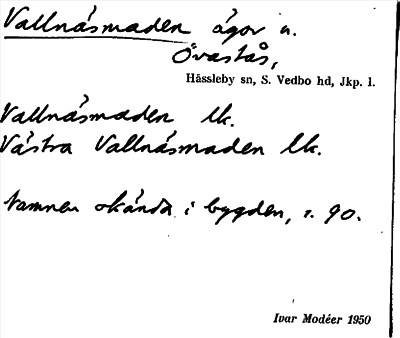 Vallnäsmaden ägor u.
Övastås,
Hässleby sn, S. Vedbo hd, Jkp. l.
Vallnäsmaden lk.
Västra Vallnäsmaden lk.
Namnen okända i bygden, s. 90.
Ivar Modéer 1950